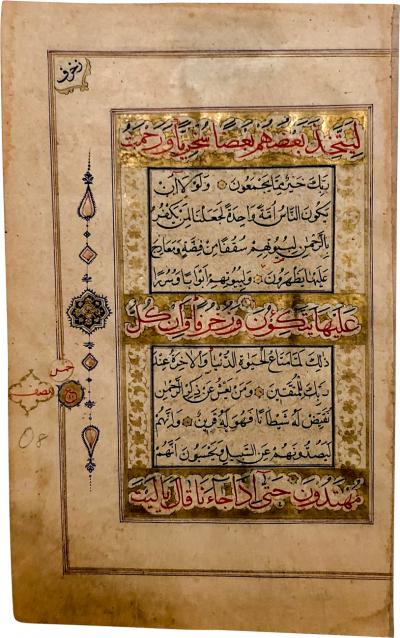 زخرف
لِيَتَّخِذَ بَعْضُهُمْ بَعْضًا سُخْرِيًّا وَرَحْمَتُ
رَبِّكَ خَيْرٌ مِمَّا يَجْمَعُونَ وَلَوْلَا اَنْ
يَكُونَ النَّاسُ اُمَّةً وَاحِدَةً لَجَعَلْنَا لِمَنْ يَكْفُرُ
بِالرَّحْمٰنِ لِبُيُوتِهِمْ سُقُفًا مِنْ فِضَّةٍ وَمَعَارِجَ
عَلَيْهَا يَظْهَرُونَ وَلِبُيُوتِهِمْ اَبْوَابًا وَسُرُرًا
عَلَيْهَا يَتَّكِؤُنَ وَزُخْرُفًا وَاِنْ كُلُّ
ذٰلِكَ لَمَّا مَتَاعُ الْحَيٰوةِ الدُّنْيَا وَالْاٰخِرَةُ عِنْدَ
رَبِّكَ لِلْمُتَّقِينَ وَمَنْ يَعْشُ عَنْ ذِكْرِ الرَّحْمٰنِ
نُقَيِّضْ لَهُ شَيْطَانًا فَهُوَ لَهُ قَرِينٌ وَاِنَّهُمْ
لَيَصُدُّونَهُمْ عَنِ السَّبِيلِ وَيَحْسَبُونَ اَنَّهُمْ
مُهْتَدُونَ حَتّٰى اِذَا جَاءَنَا قَالَ يَالَيْتَ
نصف